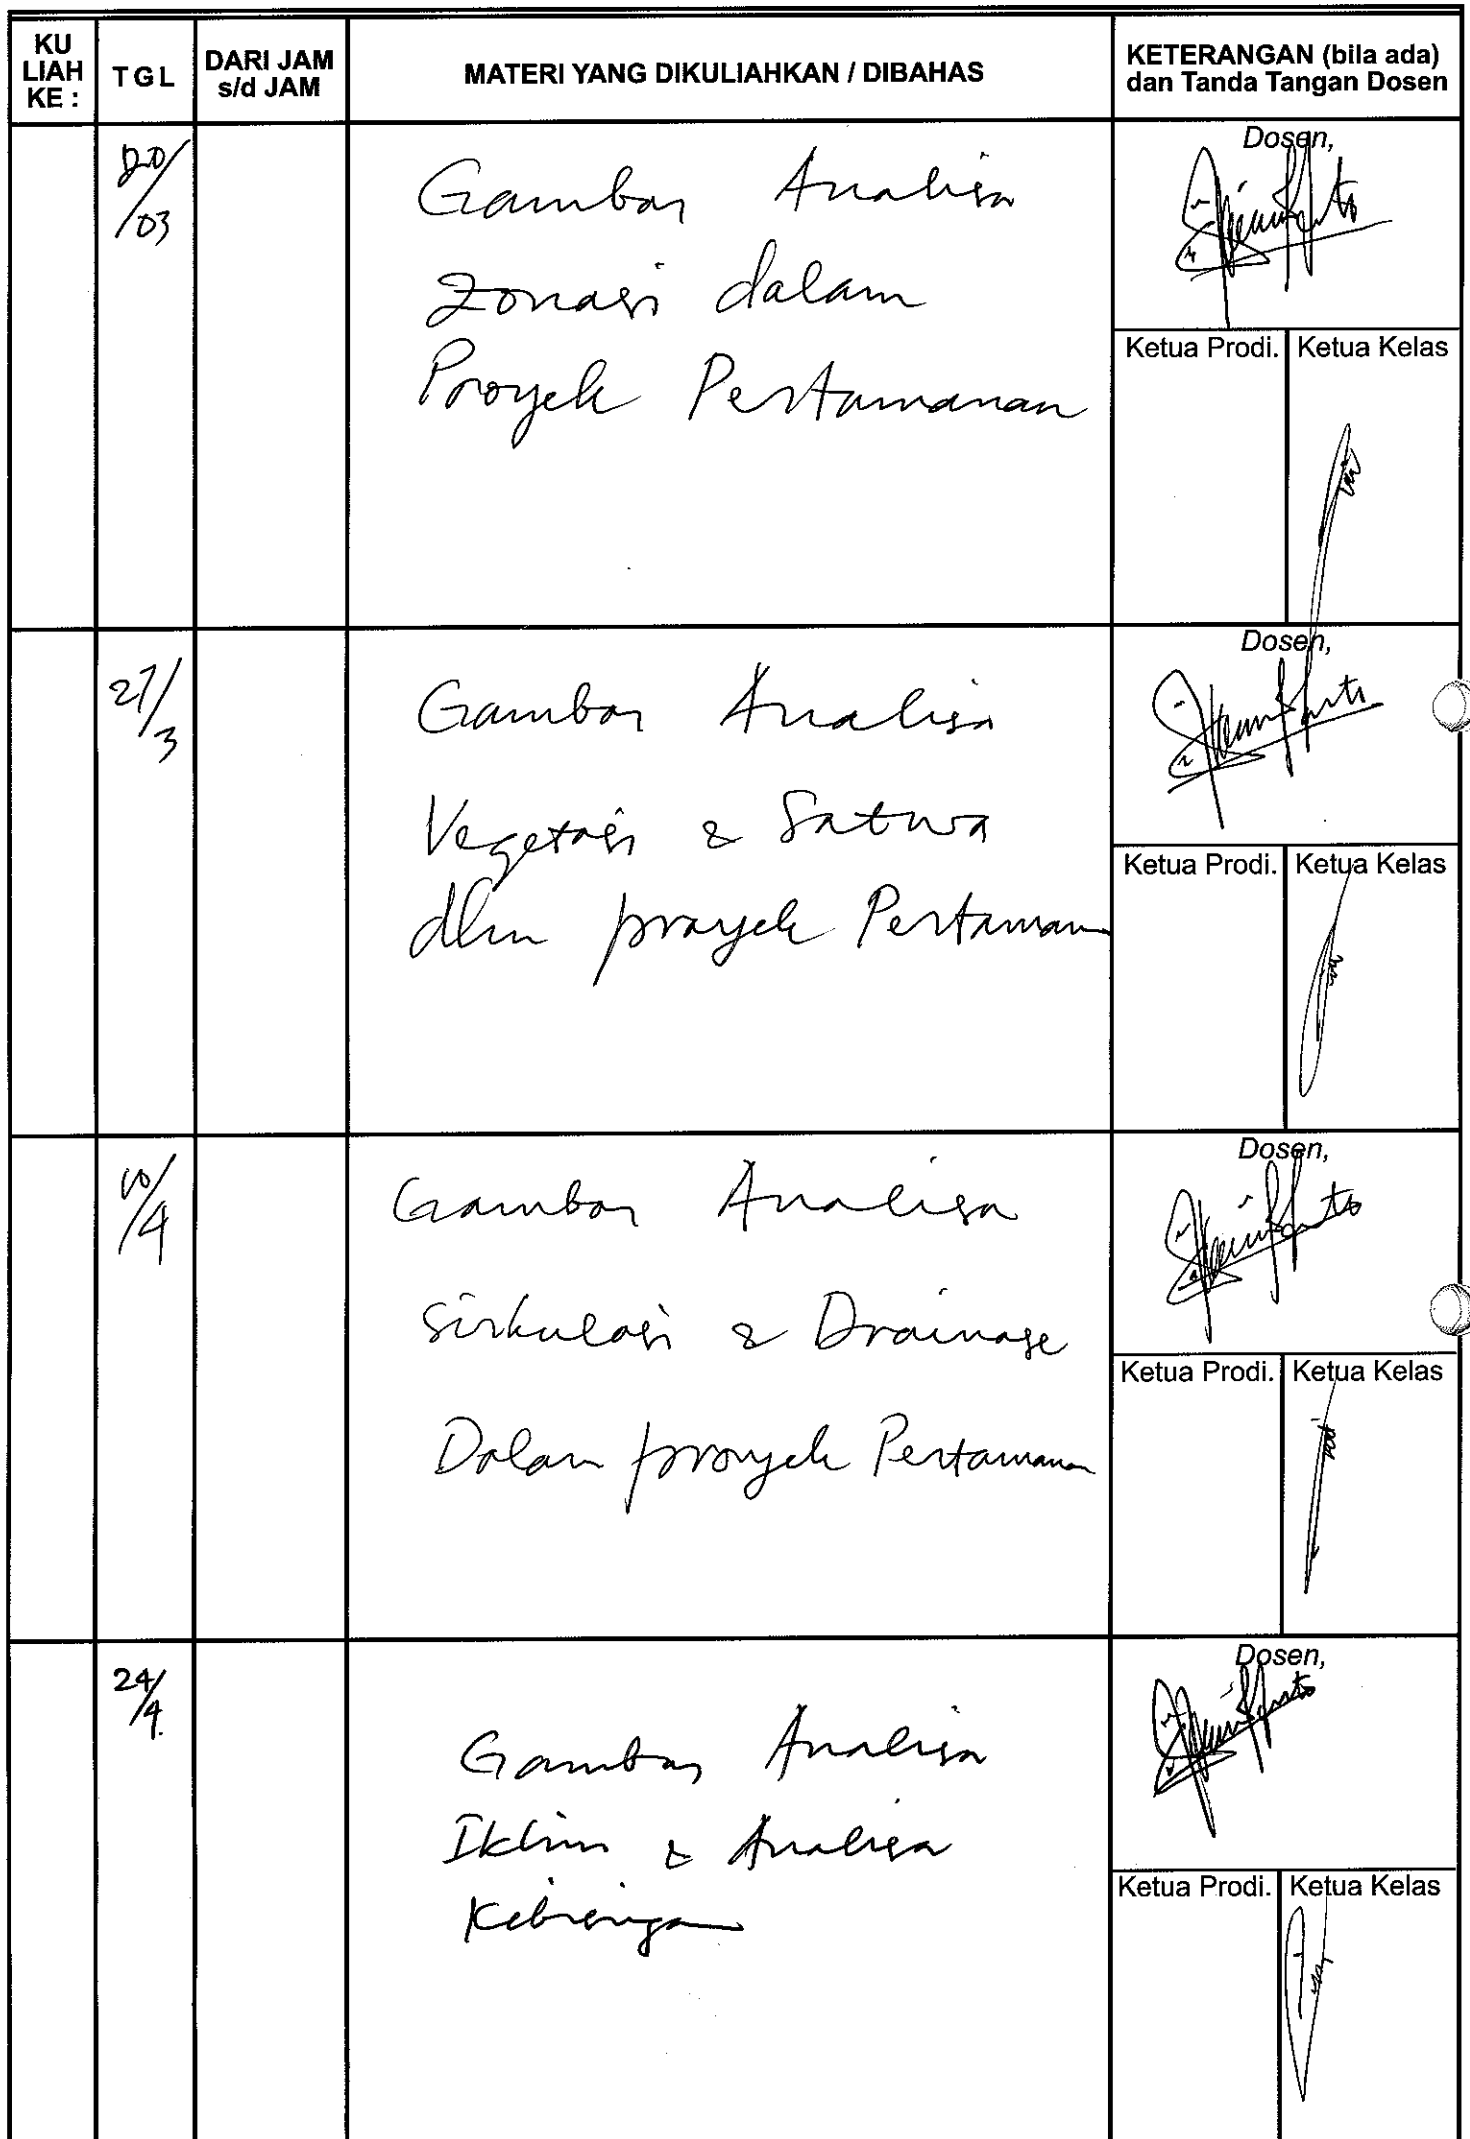 KU LIAH KE :
TGL
DARI JAM s/d JAM
MATERI YANG DIKULIAHKAN / DIBAHAS
KETERANGAN (bila ada) dan Tanda Tangan Dosen
20/03
Gambar Analisa
Zonasi dalam
Proyek Pertamanan
Dosen,
Ketua Prodi. Ketua Kelas
27/3
Gambar Analisa
Vegetasi & Satwa
dlm proyek Pertamanan
Dosen,
Ketua Prodi. Ketua Kelas
10/4
Gambar Analisa
Sirkulasi & Drainase
Dalam proyek Pertamanan
Dosen,
Ketua Prodi. Ketua Kelas
24/4.
Gambar Analisa
Iklim & Analisa
Kebisingan
Dosen,
Ketua Prodi. Ketua Kelas